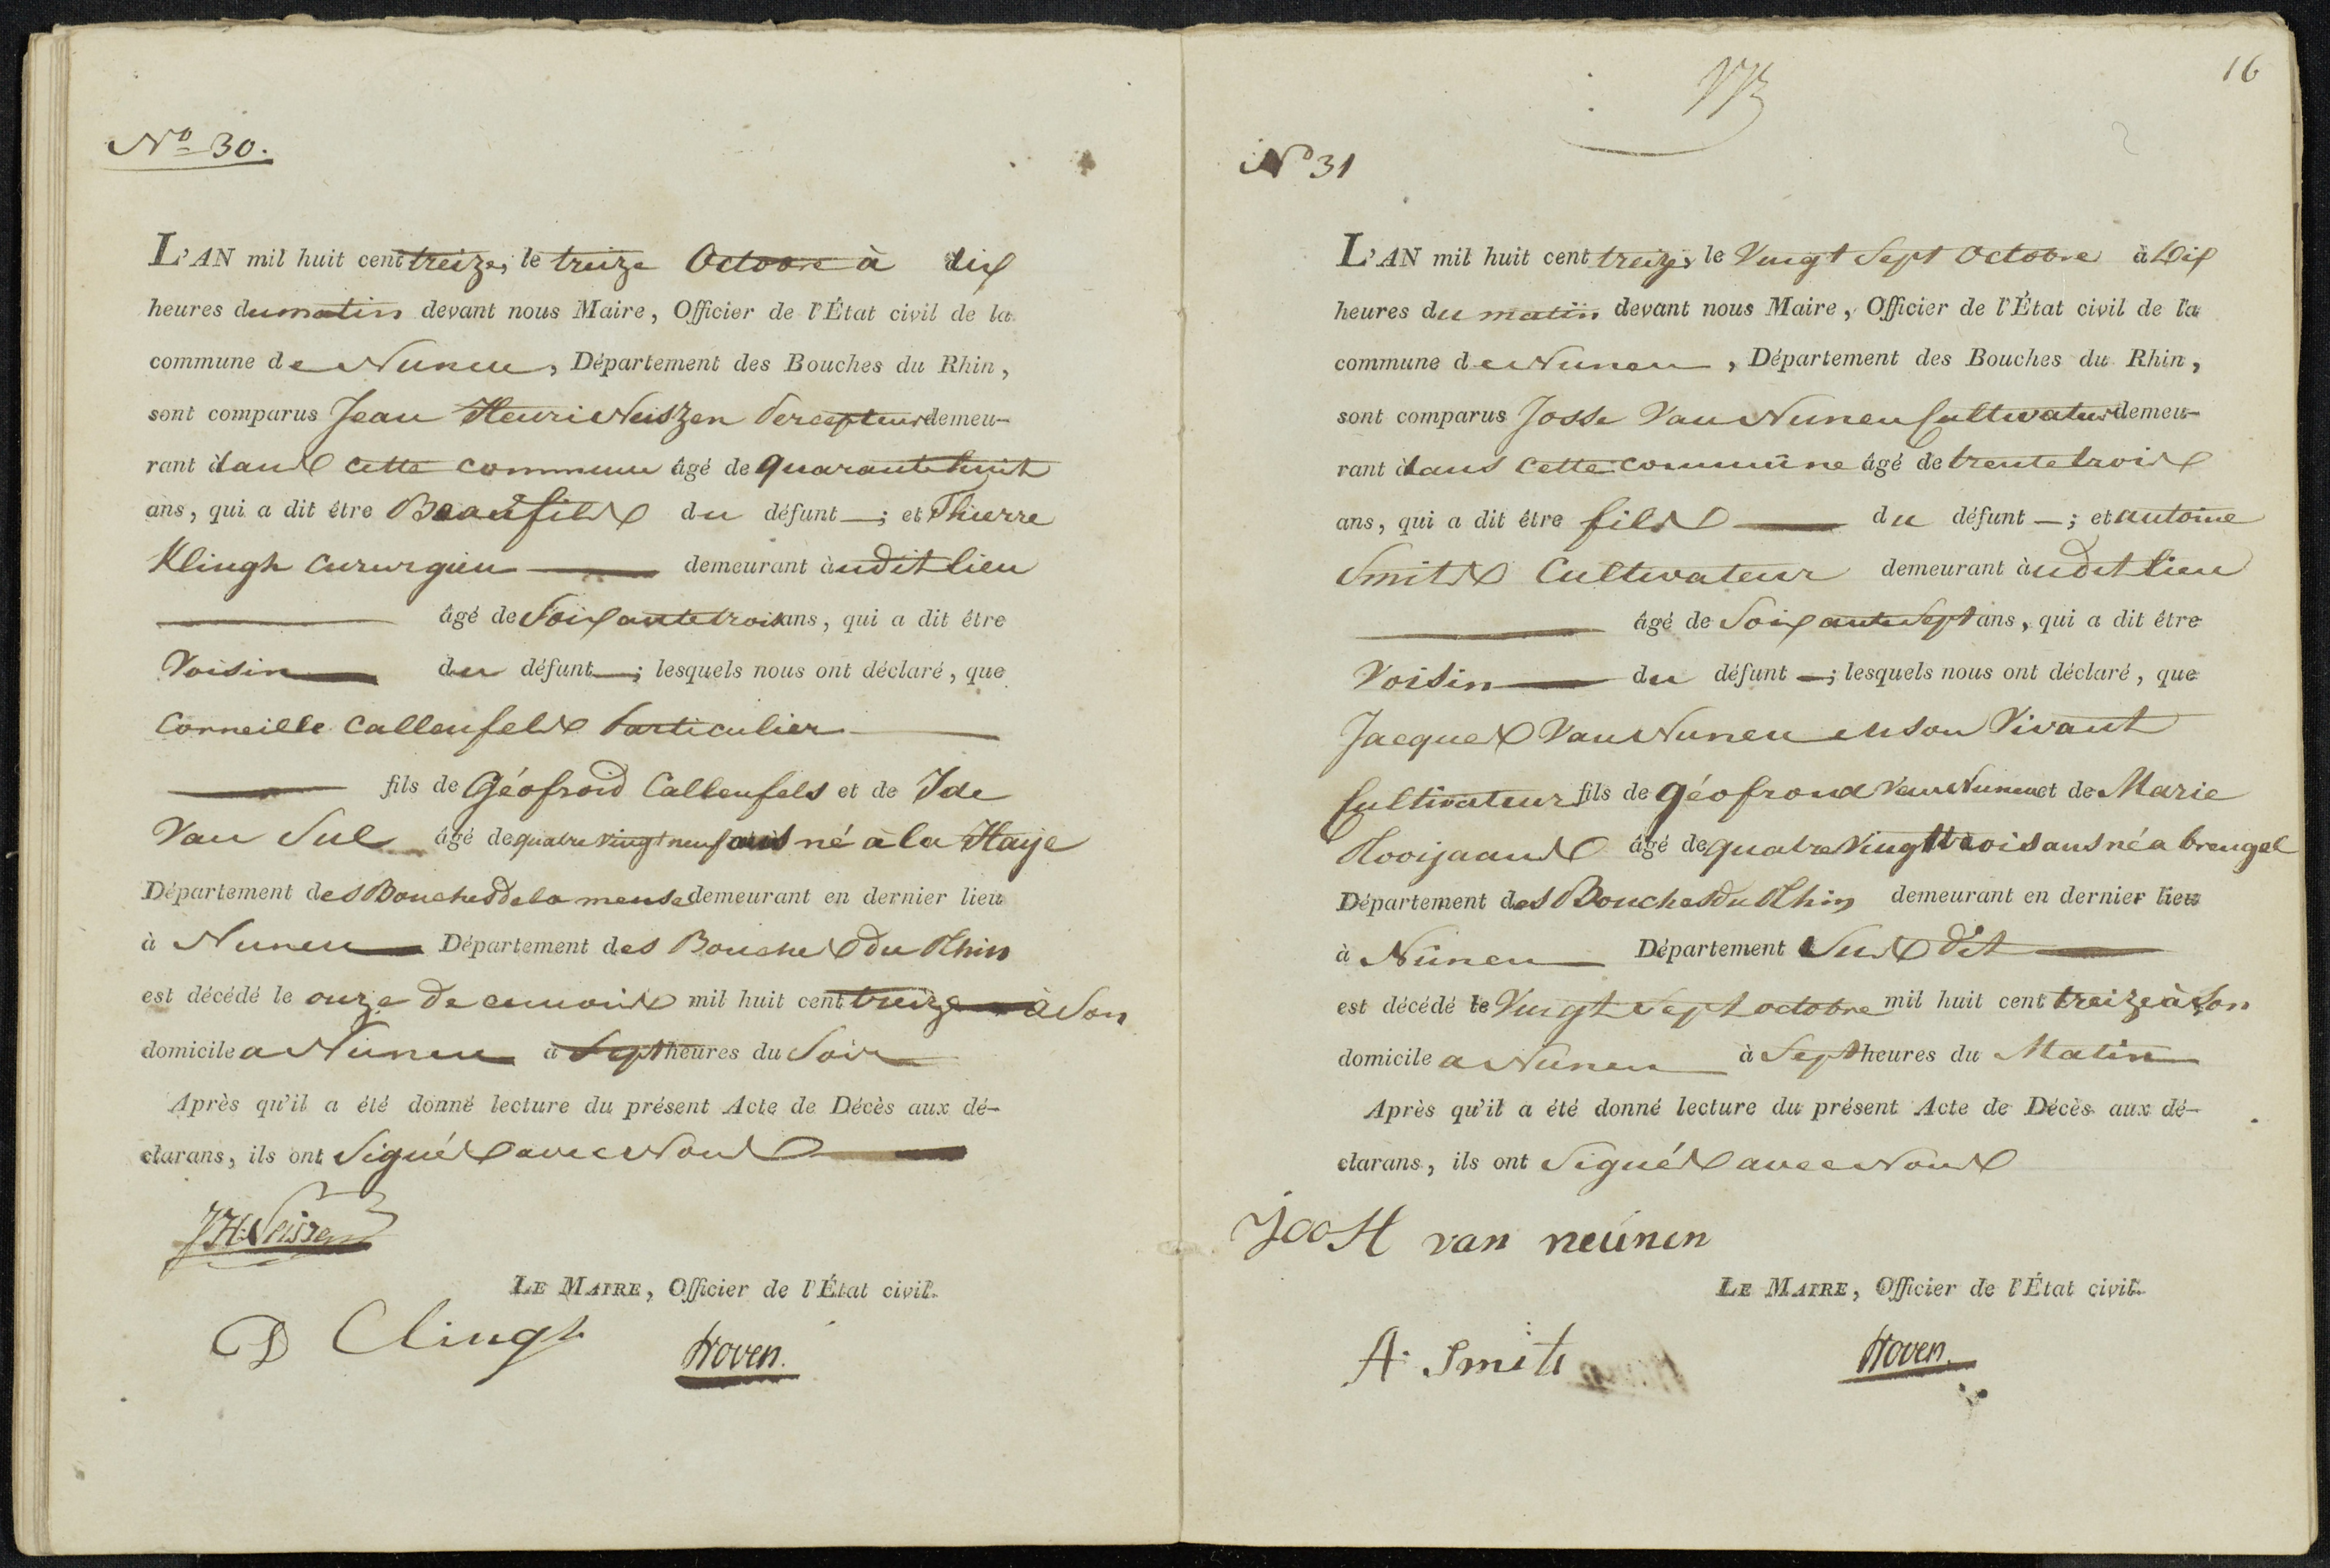 Nº 30.
L'AN mil huit cent treize, le treize Octobre à dix
heures du matin devant nous Maire, Officier de l'État civil de la
commune de Nunen, Département des Bouches du Rhin,
sont comparus Jean Henri Neiszen Percepteur demeu-
rant dans cette commune âgé de quarante huit
ans, qui a dit être Beaufils du défunt —; et Thierre
Klingh Cururgien — demeurant audit lieu
— âgé de Soixante trois ans, qui a dit être
Voisin — du défunt —; lesquels nous ont déclaré, que
Corneille Callenfels Particulier —
— fils de Géofroid Callenfels et de Ide
Van Sul âgé de quatre vingt neuf ans né à la Haye
Département des Bouches de la meuse demeurant en dernier lieu
à Nunen — Département des Bouches du Rhin
est décédé le onze de ce mois mil huit cent treize — à Son
domicile a Nunen à Sept heures du Soir —
Après qu'il a été donné lecture du présent Acte de Décès aux dé-
clarans, ils ont Signés avec Nous —
JH Neissen
LE MAIRE, Officier de l'État civil.
D Clingh
Hoven.
16
Nº 31
L'AN mil huit cent treize, le Vingt Sept Octobre à Dix
heures du matin devant nous Maire, Officier de l'État civil de la
commune de Nunen, Département des Bouches du Rhin,
sont comparus Josse Van Nunen Cultivateur demeu-
rant dans cette commune âgé de trente trois
ans, qui a dit être fils — du défunt —; et antoine
Smits Cultivateur demeurant audit lieu
— âgé de Soixante Sept ans, qui a dit être
Voisin — du défunt —; lesquels nous ont déclaré, que
Jacques Van Nunen en son Vivant
Cultivateur fils de Géofroid Van Nunen et de Marie
Rooijaans âgé de quatre Vingt trois ans né a breugel
Département des Bouches du Rhin demeurant en dernier lieu
à Nunen — Département Sus dit —
est décédé le Vingt Sept octobre mil huit cent treize à Son
domicile a Nunen — à Sept heures du Matin
Après qu'il a été donné lecture du présent Acte de Décès aux dé-
clarans, ils ont Signés avec Nous
Joost van neúnen
LE MAIRE, Officier de l'État civil.
A. Smits
Hoven.